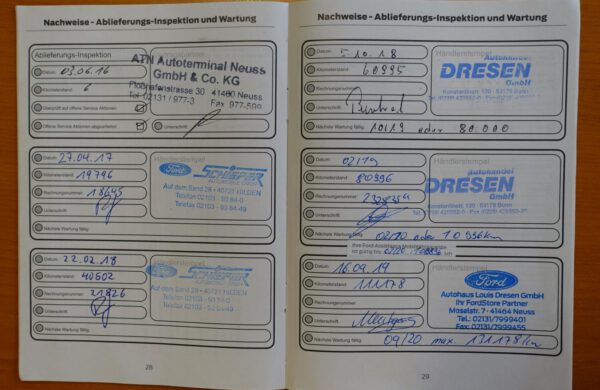 Nachweise - Ablieferungs-Inspektion und Wartung
Ablieferungs-Inspektion
Datum: 03.06.16
Kilometerstand: 6
Überprüft auf offene Service Aktionen
Offene Service Aktionen abgearbeitet
Unterschrift
ATN Autoterminal Neuss
GmbH & Co. KG
Floßhafenstrasse 30 41460 Neuss
Tel. 02131 / 977-3 Fax 977-590
Datum 27.04.17
Kilometerstand 19796
Rechnungsnummer 18645
Unterschrift
Nächste Wartung fällig
Händlerstempel
Ford SCHÄFER
Auf dem Sand 28 • 40721 HILDEN
Telefon 02103 - 50 84-0
Telefax 02103 - 50 84-49
Datum 22.02.18
Kilometerstand 40602
Rechnungsnummer 21826
Unterschrift
Nächste Wartung fällig
Händlerstempel
Ford SCHÄFER
Auf dem Sand 28 • 40721 HILDEN
Telefon 02103 - 50 84-0
Telefax 02103 - 50 84-49
28
Nachweise - Ablieferungs-Inspektion und Wartung
Datum 5.10.18
Kilometerstand 60995
Rechnungsnummer
Unterschrift
Nächste Wartung fällig 10/19 oder 80.000
Händlerstempel
DRESEN
GmbH
Datum 02/19
Kilometerstand 80996
Rechnungsnummer
Unterschrift
Nächste Wartung fällig 02/20 oder
Händlerstempel
Autohandel
DRESEN
GmbH
Ihre Ford Assistance Mobilitätsgarantie
ist gültig bis: 02/20 km
Datum 16.09.19
Kilometerstand 111178
Rechnungsnummer
Unterschrift
Nächste Wartung fällig 09/20 max. 131178 km
Ford
Autohaus Louis Dresen GmbH
Ihr FordStore Partner
Moselstr. 7 • 41464 Neuss
Tel.: 02131/7999401
Fax: 02131/7999455
29